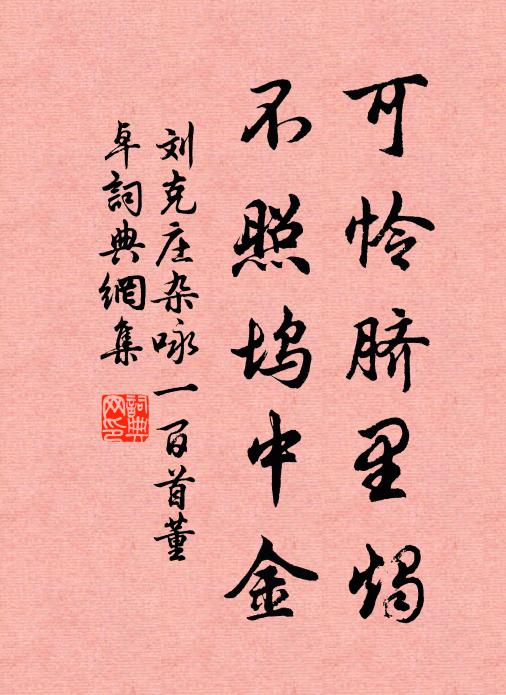 可怜脐里烛
不照坞中金
刘克庄杂咏一百首董
卓詞典網集
詞典网印